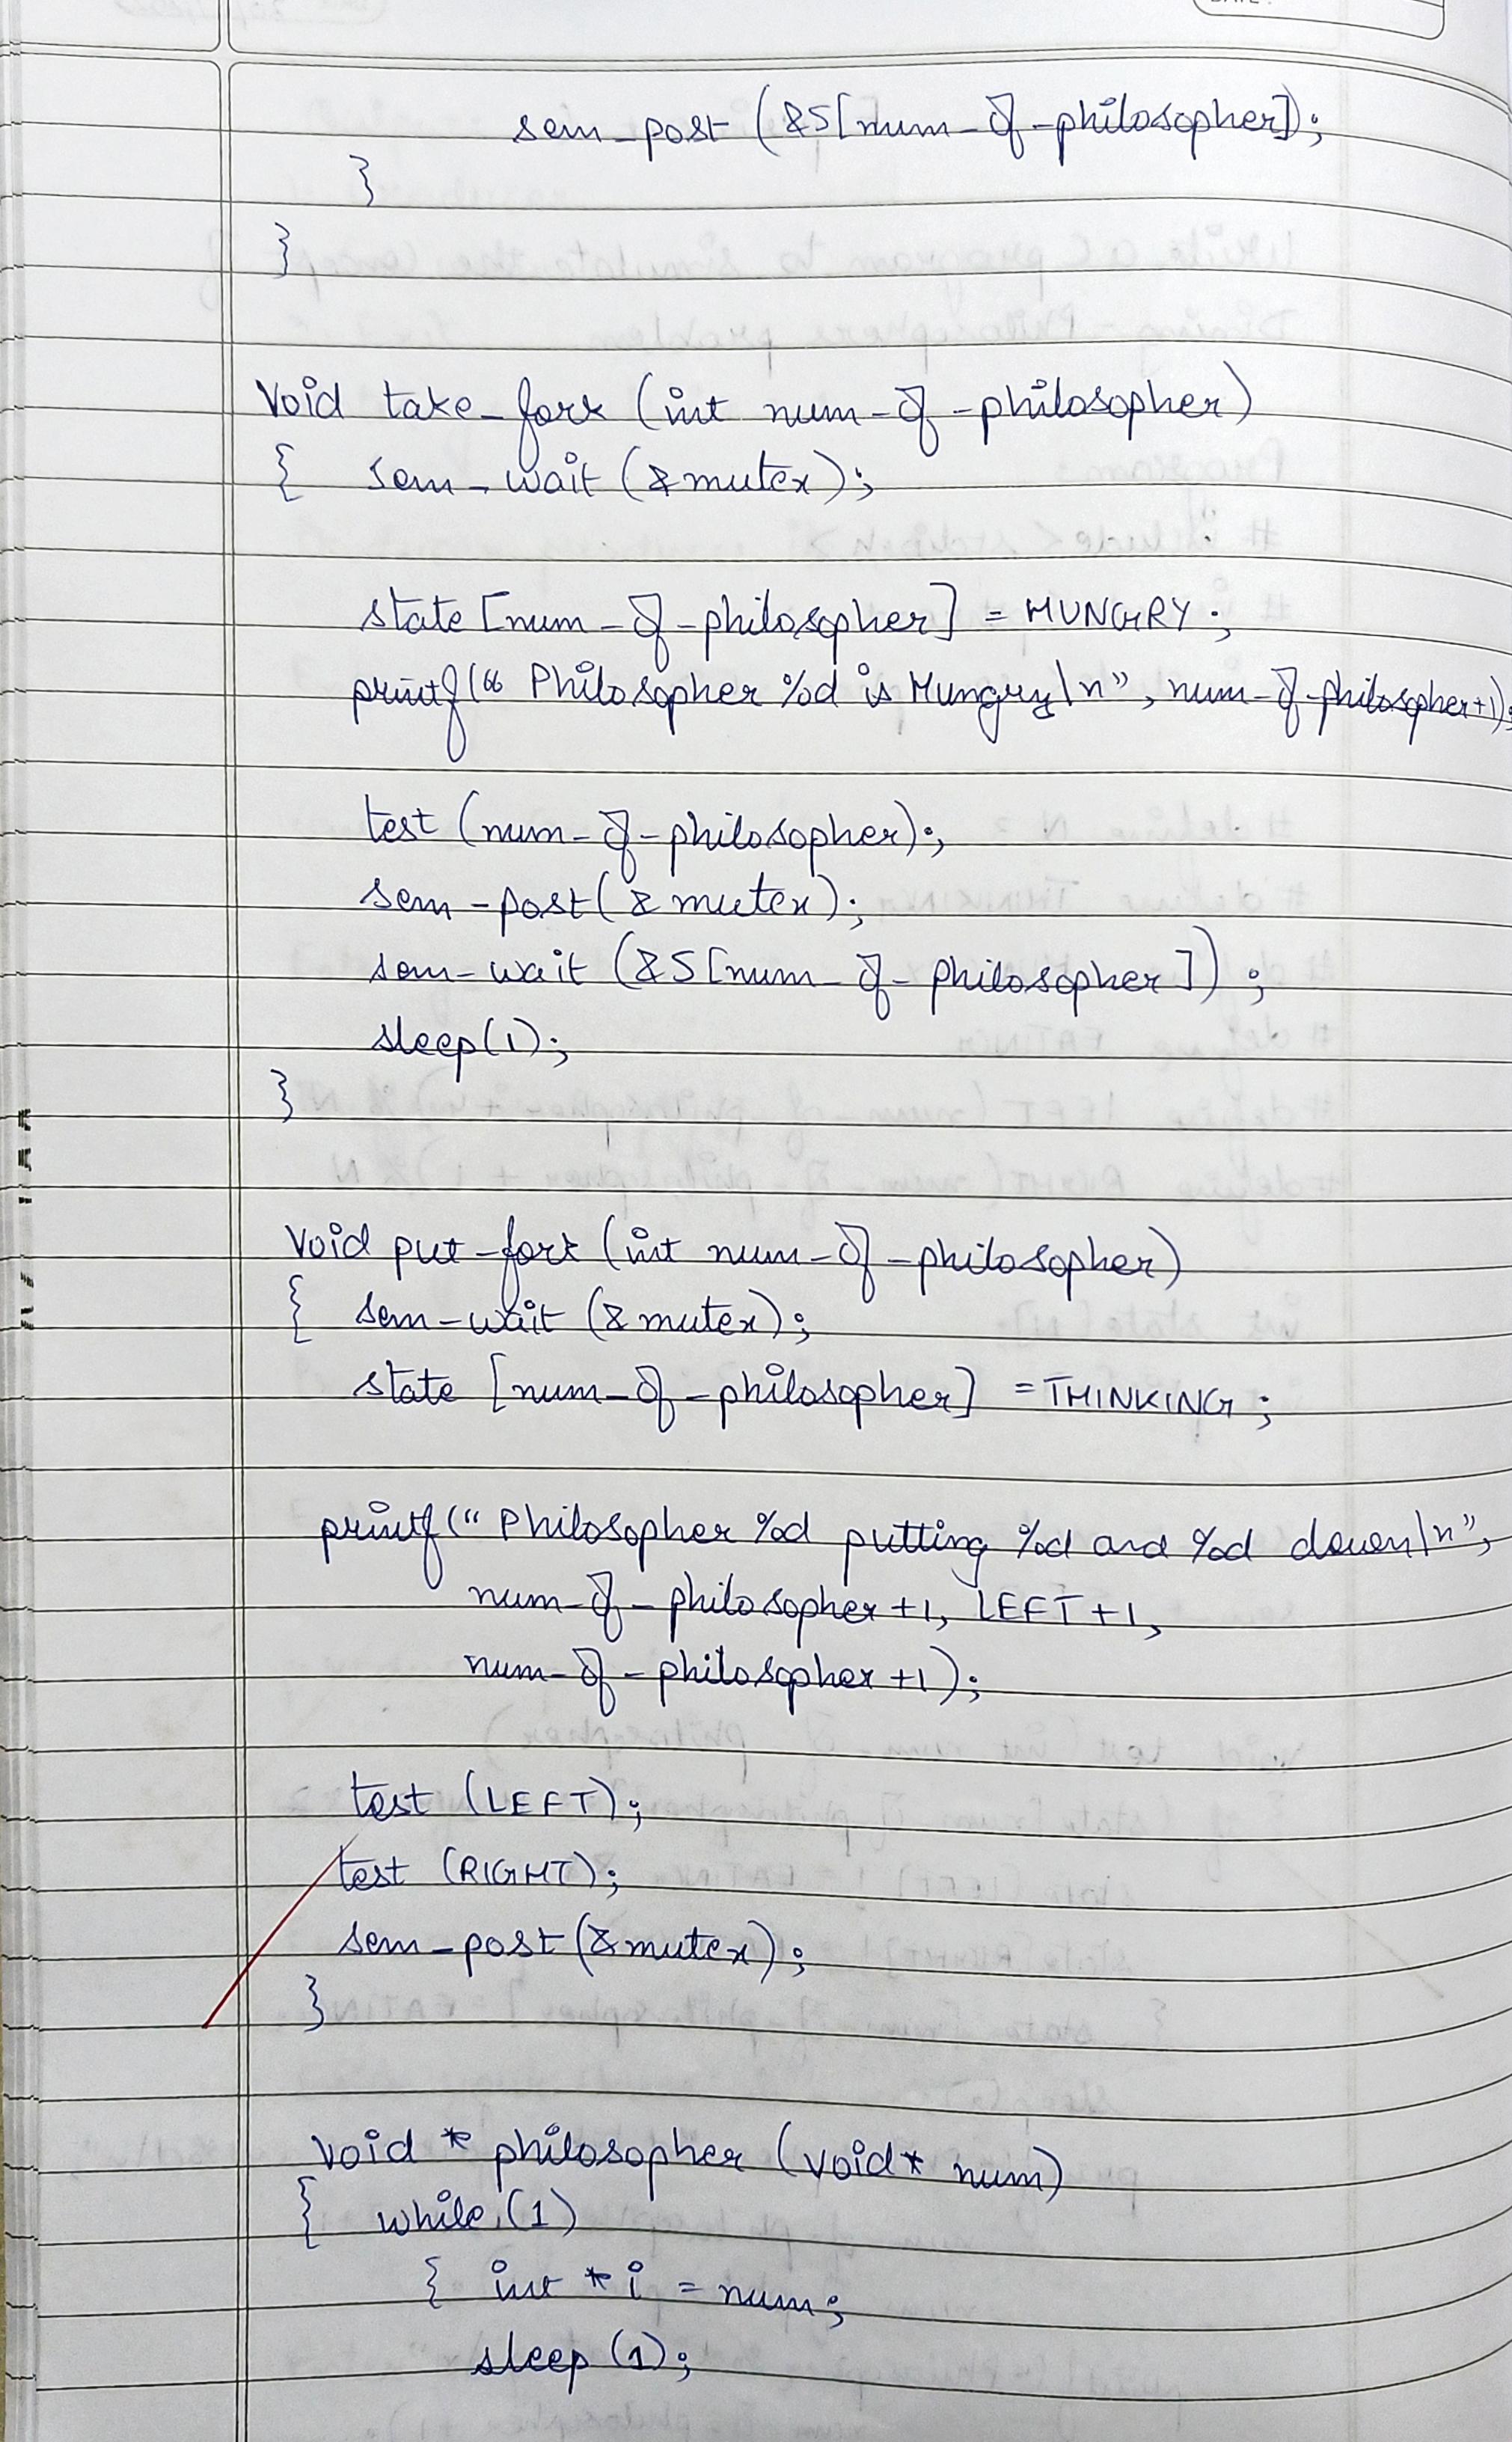 sem_post (&S[num_of_philosopher]);
}
}
Void take_fork (int num_of_philosopher)
{ sem_wait (&mutex);
state [num_of_philosopher] = HUNGRY;
printf(" Philosopher %d is Hungry\n", num_of_philosopher+1);
test (num_of_philosopher);
sem_post(&mutex);
sem_wait (&S[num_of_philosopher]);
sleep(1);
}
Void put_fork (int num_of_philosopher)
{ sem_wait (&mutex);
state [num_of_philosopher] = THINKING;
printf(" Philosopher %d putting %d and %d down\n",
num_of_philosopher+1, LEFT+1,
num_of_philosopher+1);
test (LEFT);
test (RIGHT);
sem_post(&mutex);
}
void * philosopher (void* num)
{ while (1)
{ int *i = num;
sleep (1);